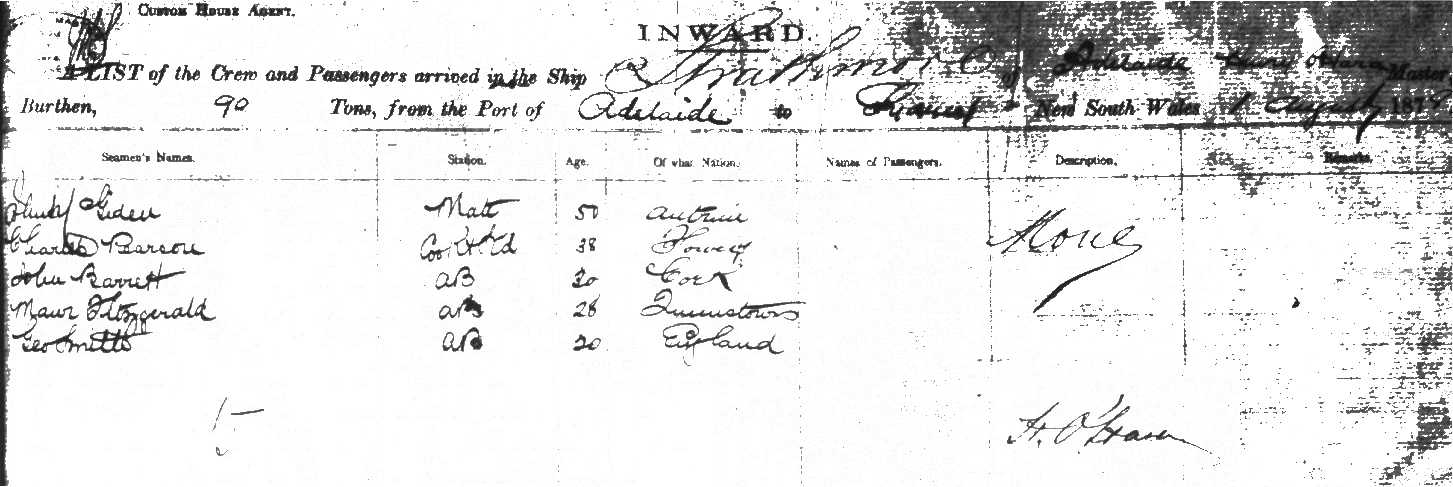 CUSTOM HOUSE AGENT.
INWARD.
A LIST of the Crew and Passengers arrived in the Ship Strathmore of Adelaide Henry O'Hara Master
Burthen, 90 Tons, from the Port of Adelaide to New South Wales 1 August 187
Seamen's Names. Station. Age. Of what Nation. Names of Passengers. Description. Remarks.
Matt 50 Antrim
Charles Cook 38
John Barrett AB 30 Cork
Maur Fitzgerald AB 28 Queenstown
Geo Smith AB 20 England
None
5
H. O'Hara